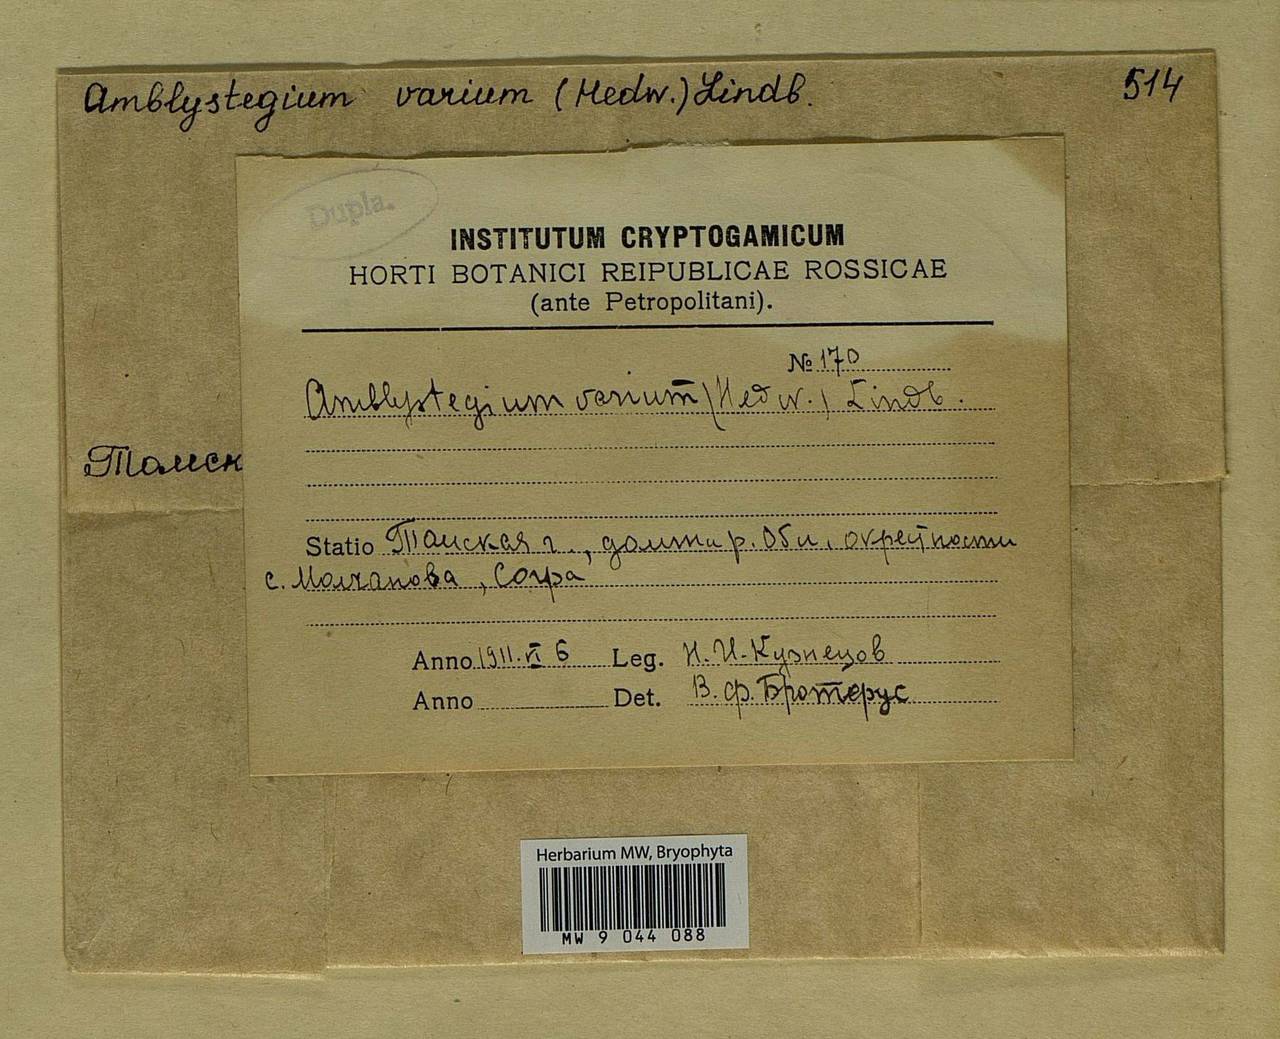 Amblystegium varium (Hedw.) Lindb.
514
Dupla.
INSTITUTUM CRYPTOGAMICUM
HORTI BOTANICI REIPUBLICAE ROSSICAE
(ante Petropolitani).
№ 170
Amblystegium varium (Hedw.) Lindb.
Томск
Statio Томская г., долина р. Оби, окрестности
с. Молчанова, Согра
Anno 1911. VI 6 Leg. Н. И. Кузнецов
Anno Det. В. Ф. Бротерус
Herbarium MW, Bryophyta
MW 9 044 088